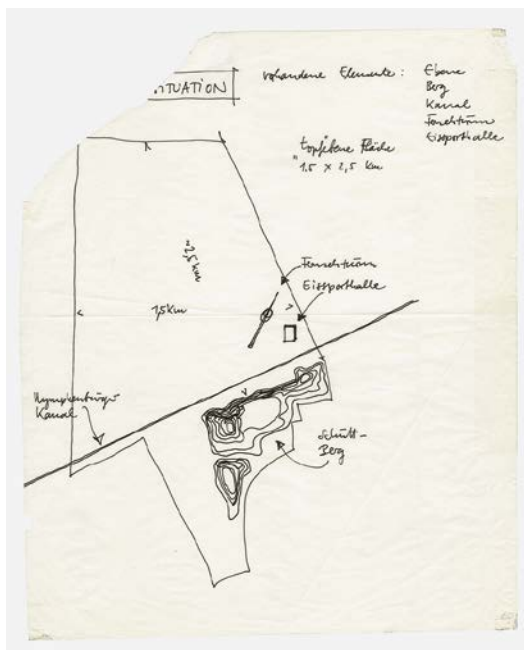 SITUATION
vorhandene Elemente : Ebene
Berg
Kanal
Fernsehturm
Eissporthalle
topfebene Fläche
~ 1.5 x 2,5 km
~2,5 km
1,5 km
Fernsehturm
Eissporthalle
Nymphenburger
Kanal
Schutt-
Berg